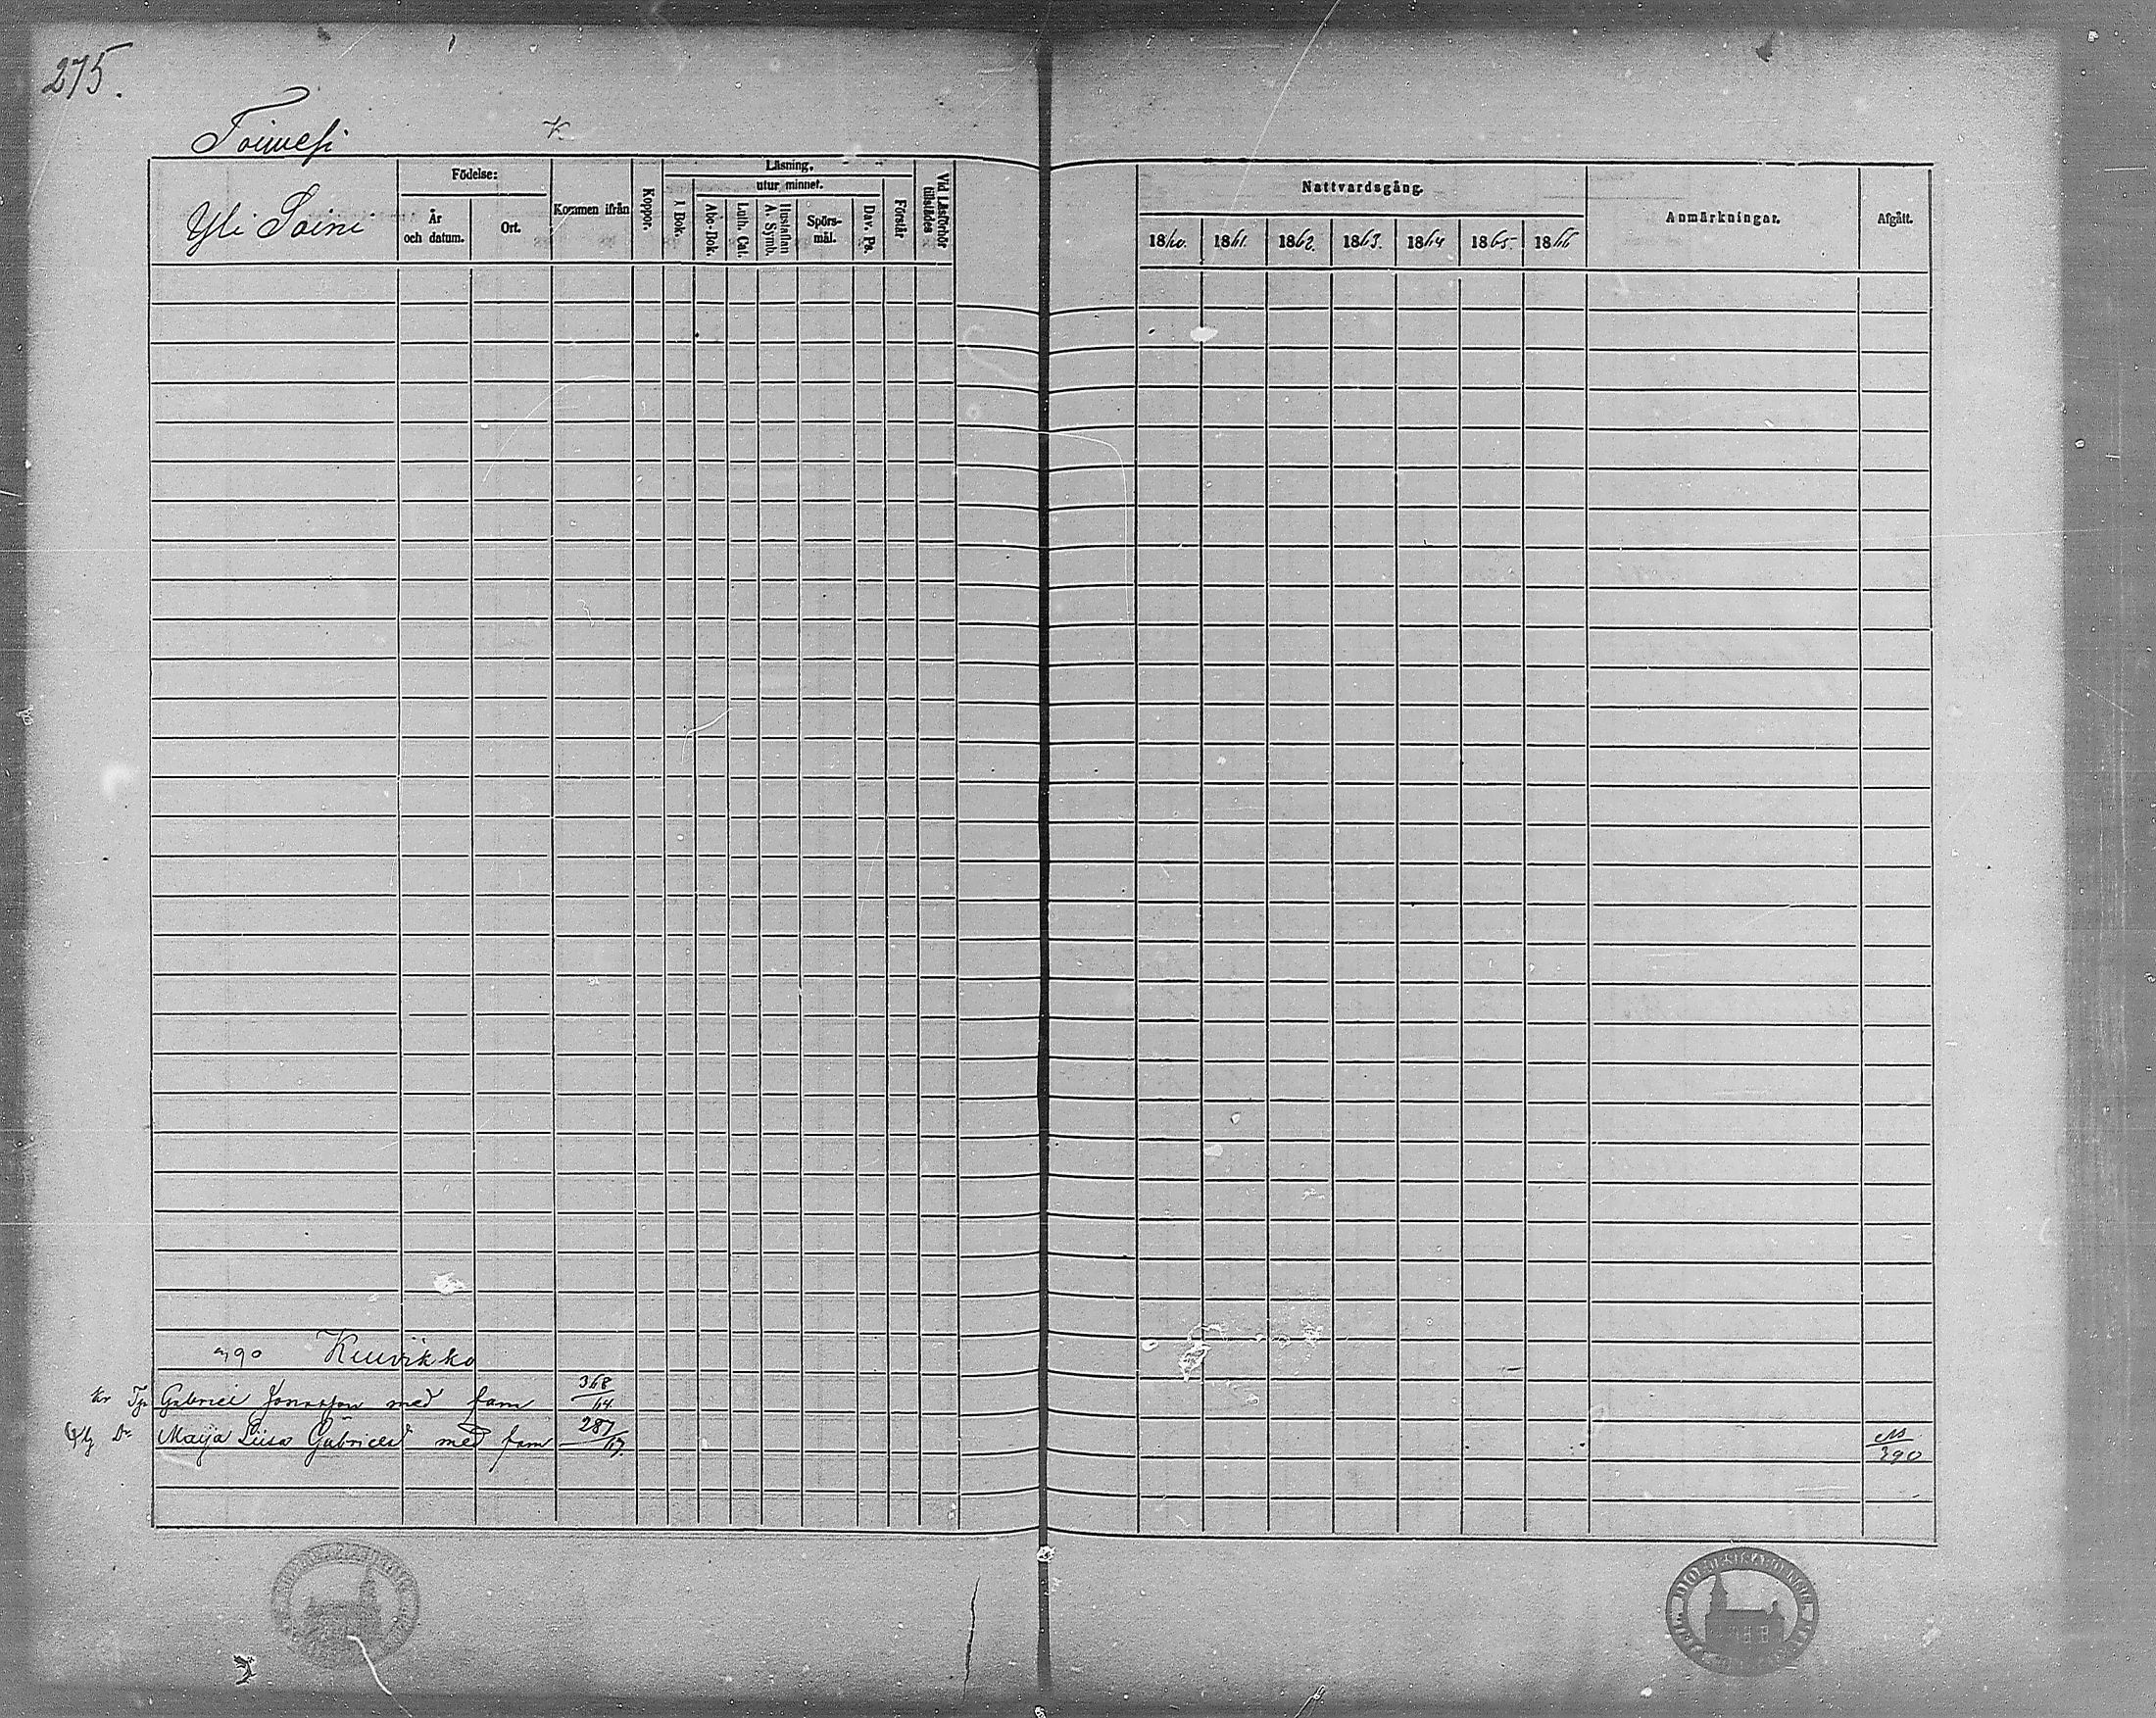 275.
Toimesi
K
Yli Soini
Födelse:
År
och datum.
Ort.
Kommen ifrån
Koppor.
Läsning.
utur minnet.
I Bok.
Abc-Bok.
Luth. Cat.
Hustaflan
A. Symb.
Spörs-
mål.
Dav. Ps.
Förstår
Vid Läsförhör
tillstädes
Nattvardsgång.
1860. 1861. 1862. 1863. 1864 1865. 1866
Anmärkningar.
Afgått.
Kuuvikko
Gabriel Jonasson med fam 368/64
Maija Liisa Gabrielsd med fam 287/67.
390